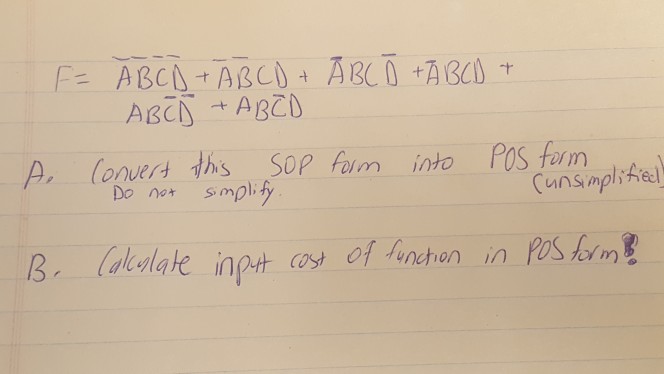 F= A̅B̅C̅D̅ + A̅B̅CD + A̅BCD̅ + A̅BCD +
ABC̅D̅ + ABC̅D
A. Convert this SOP form into POS form
Do not simplify. (unsimplified)
B. Calculate input cost of function in POS form!